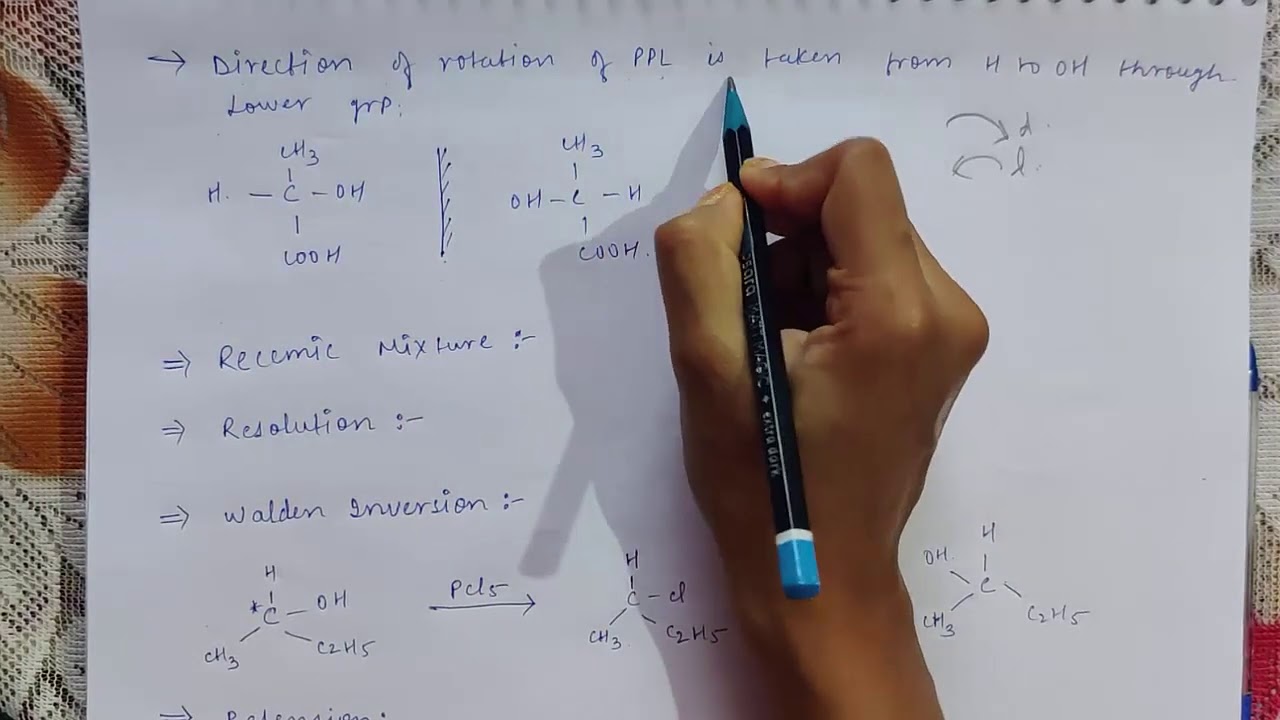 → Direction of rotation of PPL is taken from H to OH through
Lower grp.
d.
l.
CH3
H. — C — OH
COOH
CH3
OH — C — H
COOH.
⇒ Recemic Mixture :-
⇒ Resolution :-
⇒ Walden Inversion :-
H
*C — OH
CH3 C2H5
PCl5
H
C — Cl
CH3 C2H5
H
OH.
C
CH3 C2H5
⇒ Retension: